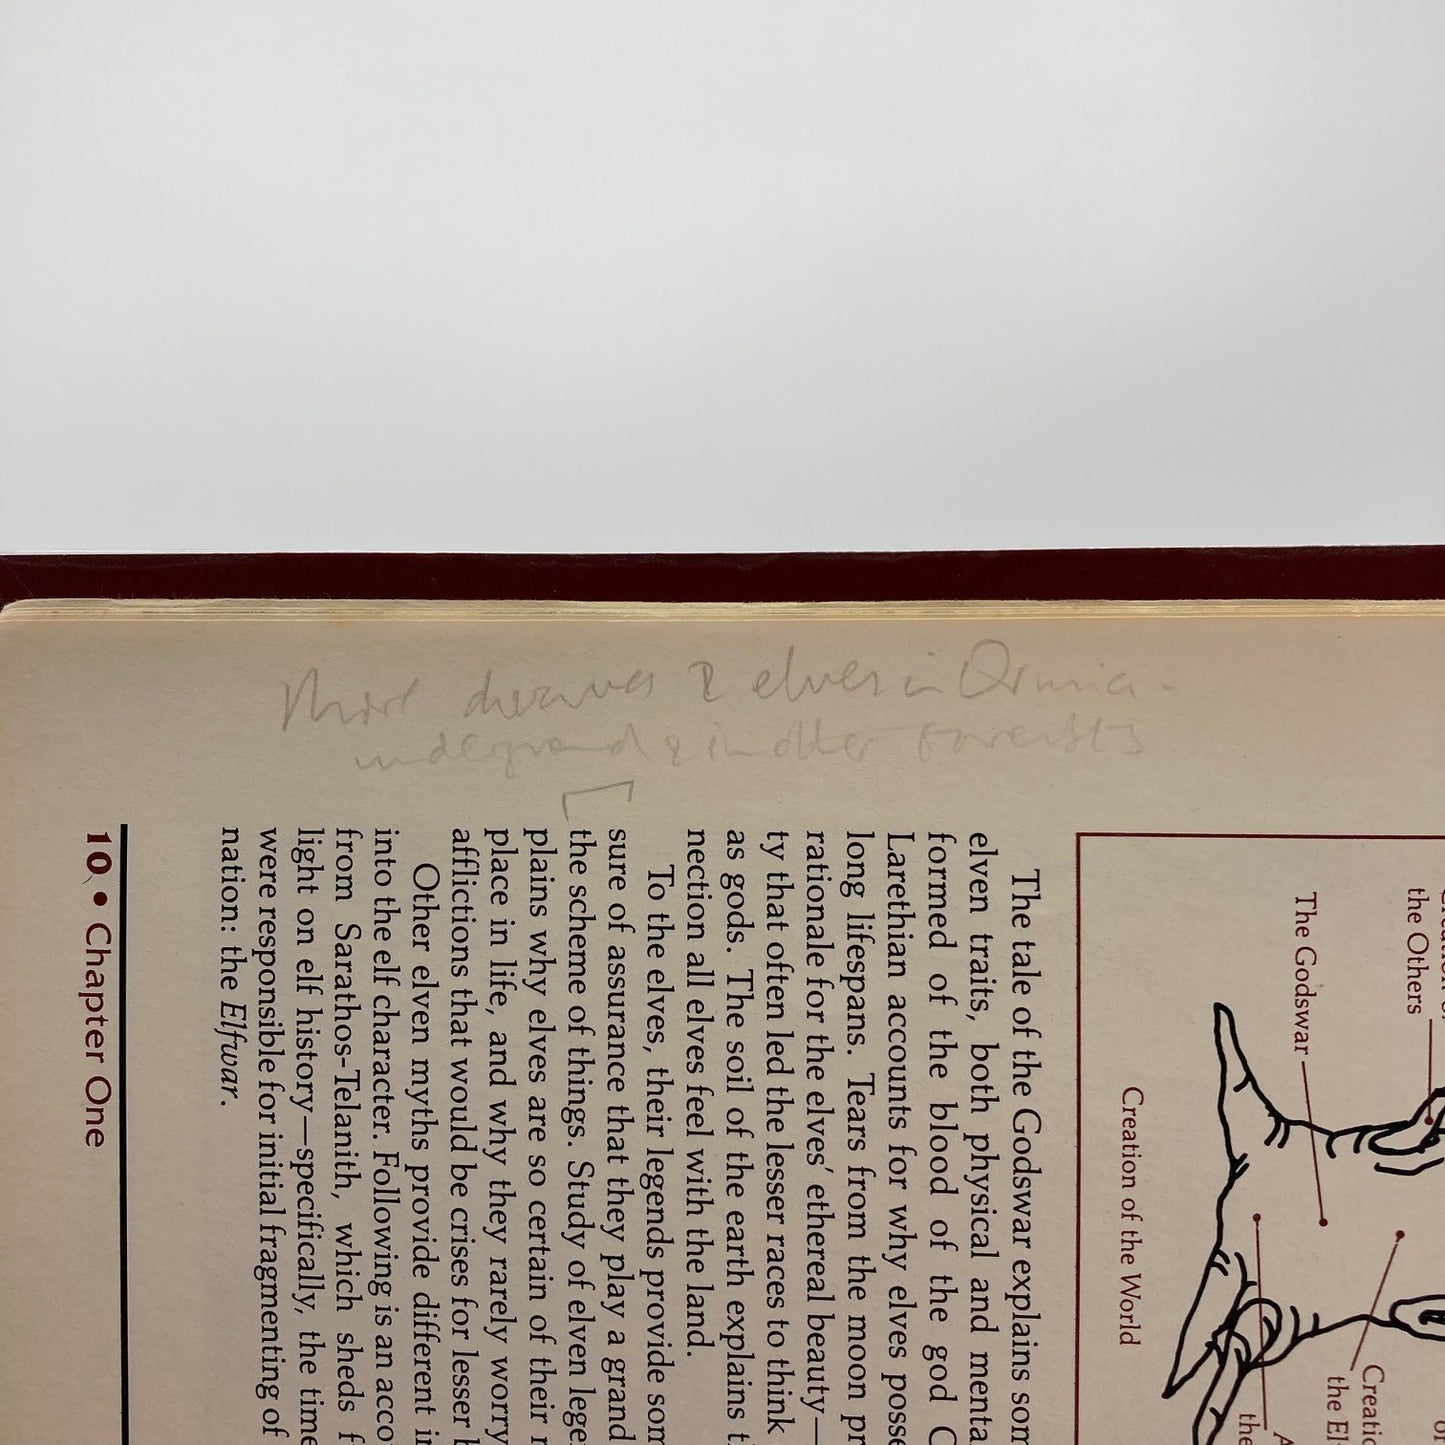 elves in Ormia.
underground & in other forests
the Others
The Godswar
Creation of the World
The tale of the Godswar explains som
elven traits, both physical and menta
formed of the blood of the god C
Larethian accounts for why elves posse
long lifespans. Tears from the moon pr
rationale for the elves' ethereal beauty—
ty that often led the lesser races to think
as gods. The soil of the earth explains t
nection all elves feel with the land.
To the elves, their legends provide som
sure of assurance that they play a grand
the scheme of things. Study of elven lege
plains why elves are so certain of their r
place in life, and why they rarely worry
afflictions that would be crises for lesser
Other elven myths provide different in
into the elf character. Following is an acco
from Sarathos-Telanith, which sheds f
light on elf history—specifically, the time
were responsible for initial fragmenting of
nation: the Elfwar.
10 • Chapter One